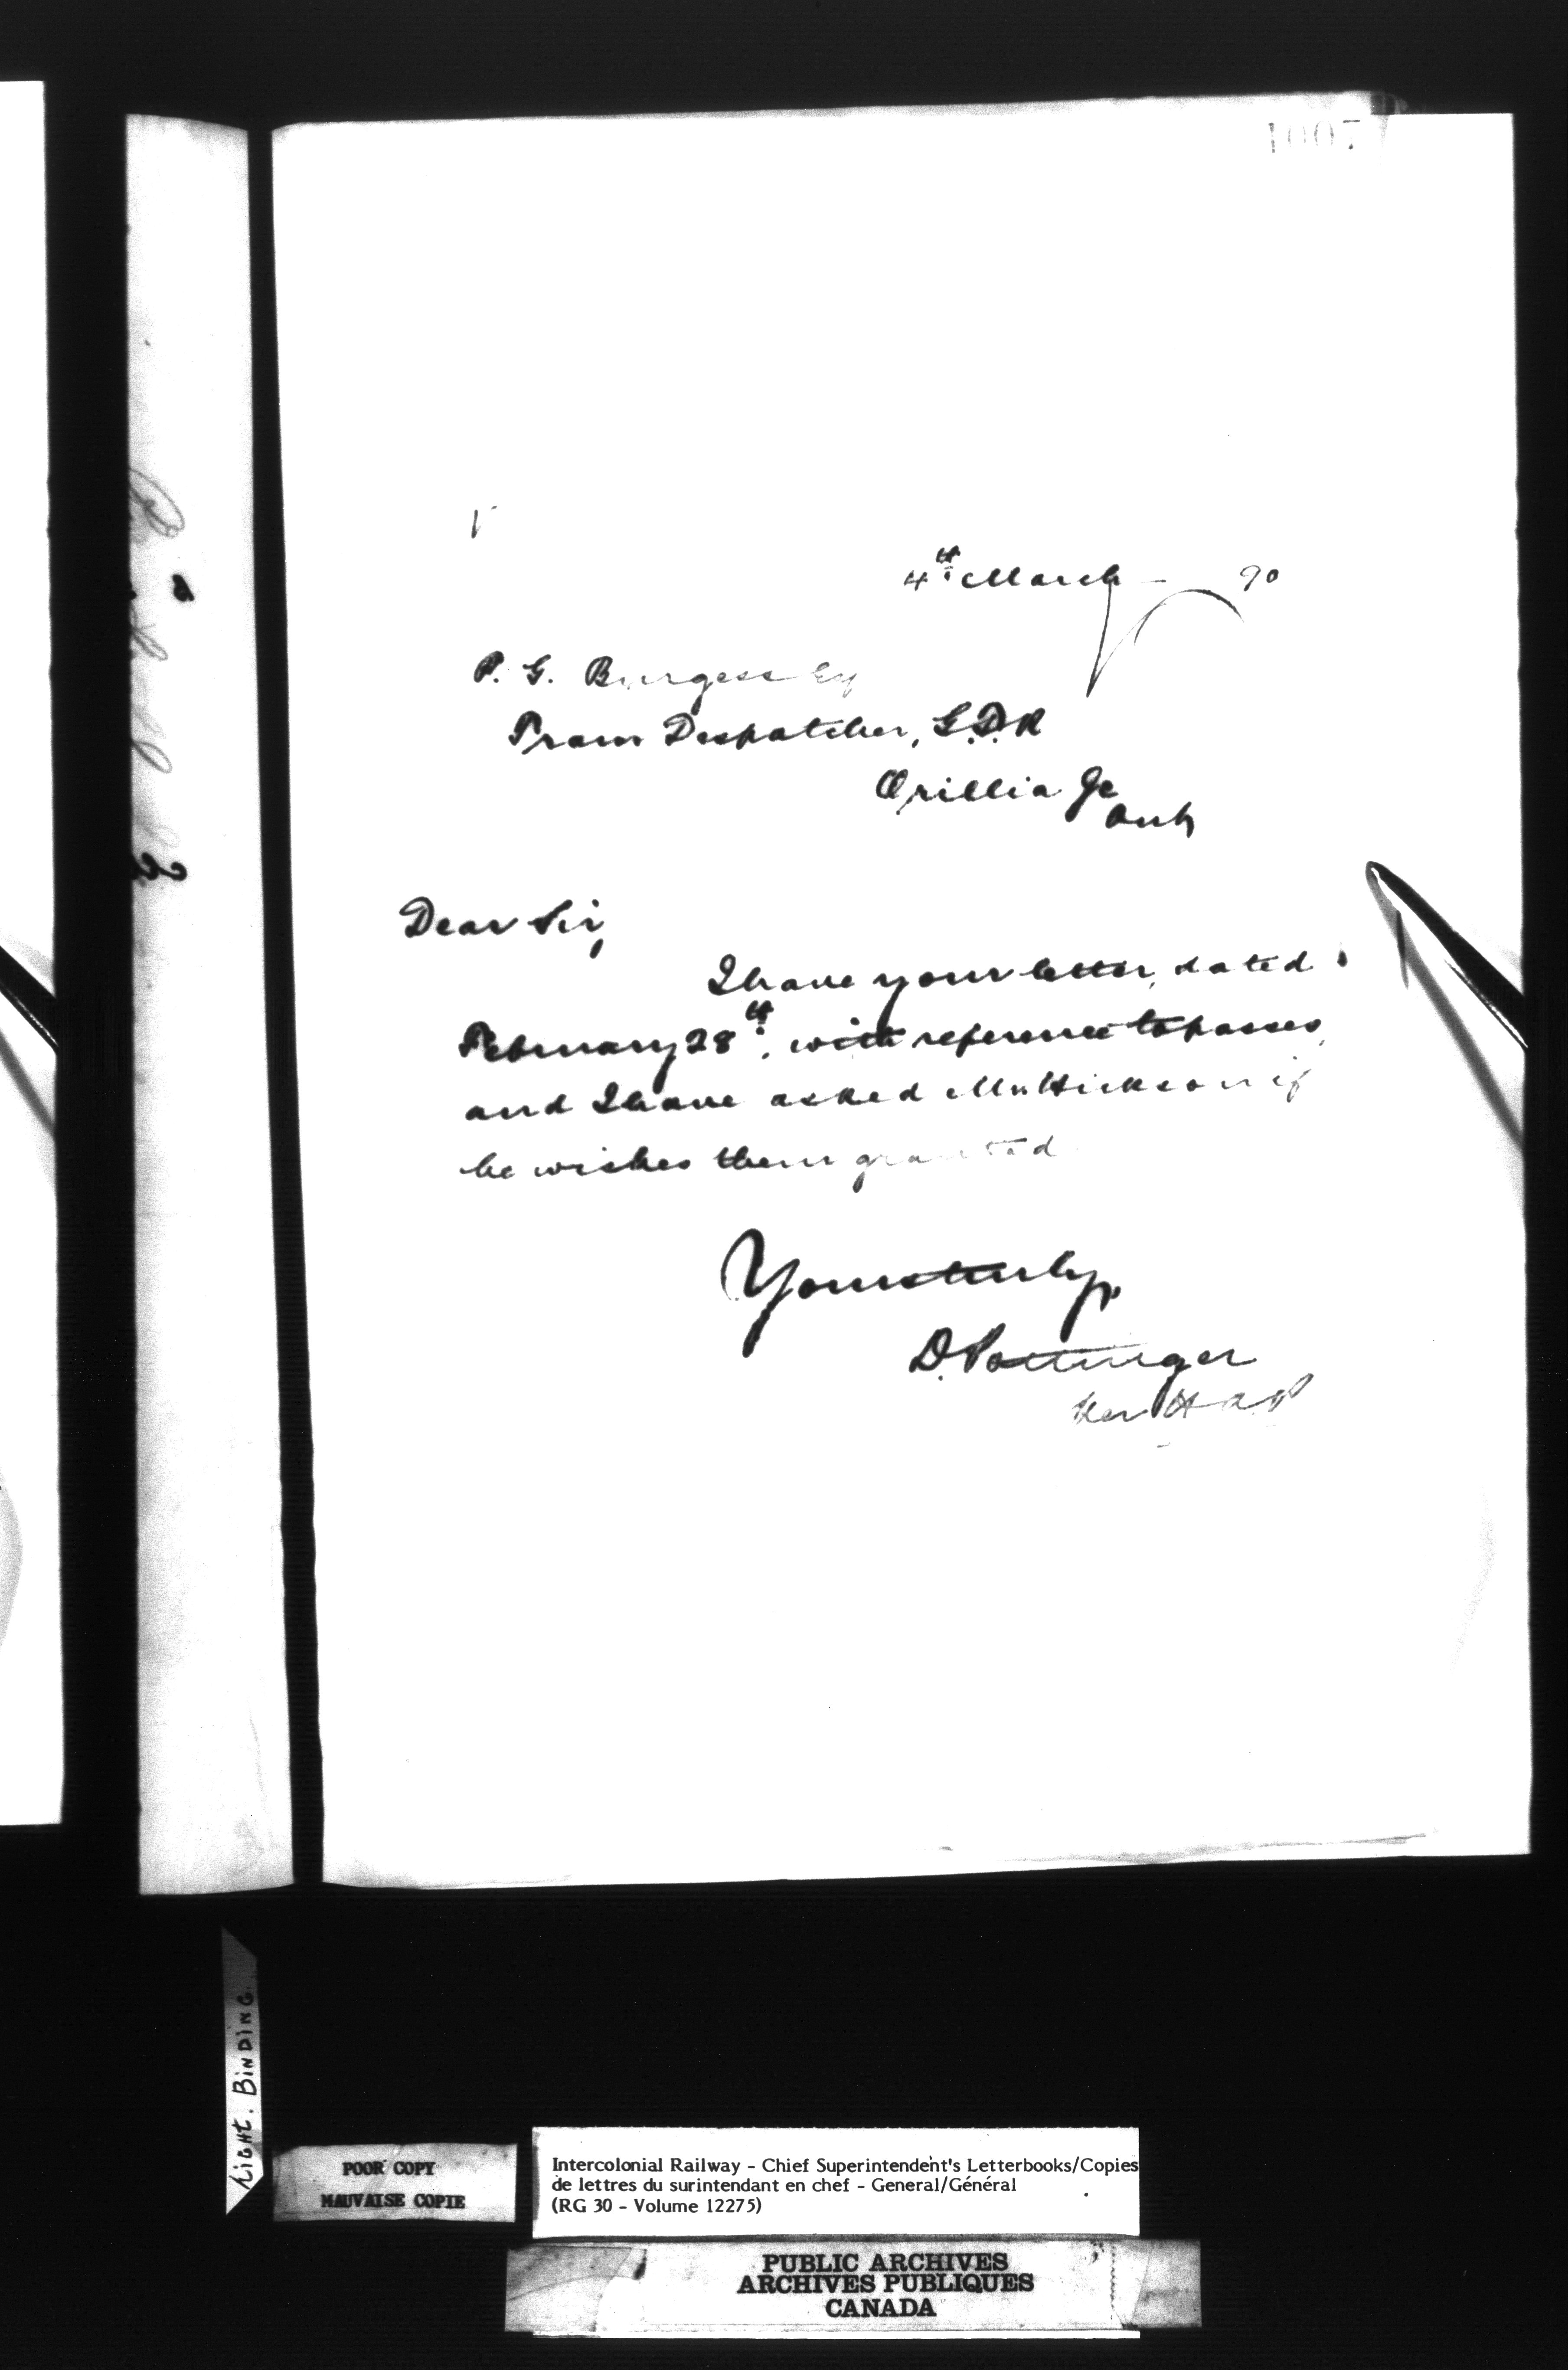 1007
4th March - 90
P. G. Burgess Esq
Train Despatcher, G.T.R
Orillia Jc
Ont
Dear Sir,
I have your letter, dated
February 28th, with reference to passes,
and I have asked Mr Hickson if
he wishes them granted
Yours truly,
D. Pottinger
Per
Tight. BINDING.
POOR COPY
MAUVAISE COPIE
Intercolonial Railway - Chief Superintendent's Letterbooks/Copies
de lettres du surintendant en chef - General/Général
(RG 30 - Volume 12275)
PUBLIC ARCHIVES
ARCHIVES PUBLIQUES
CANADA